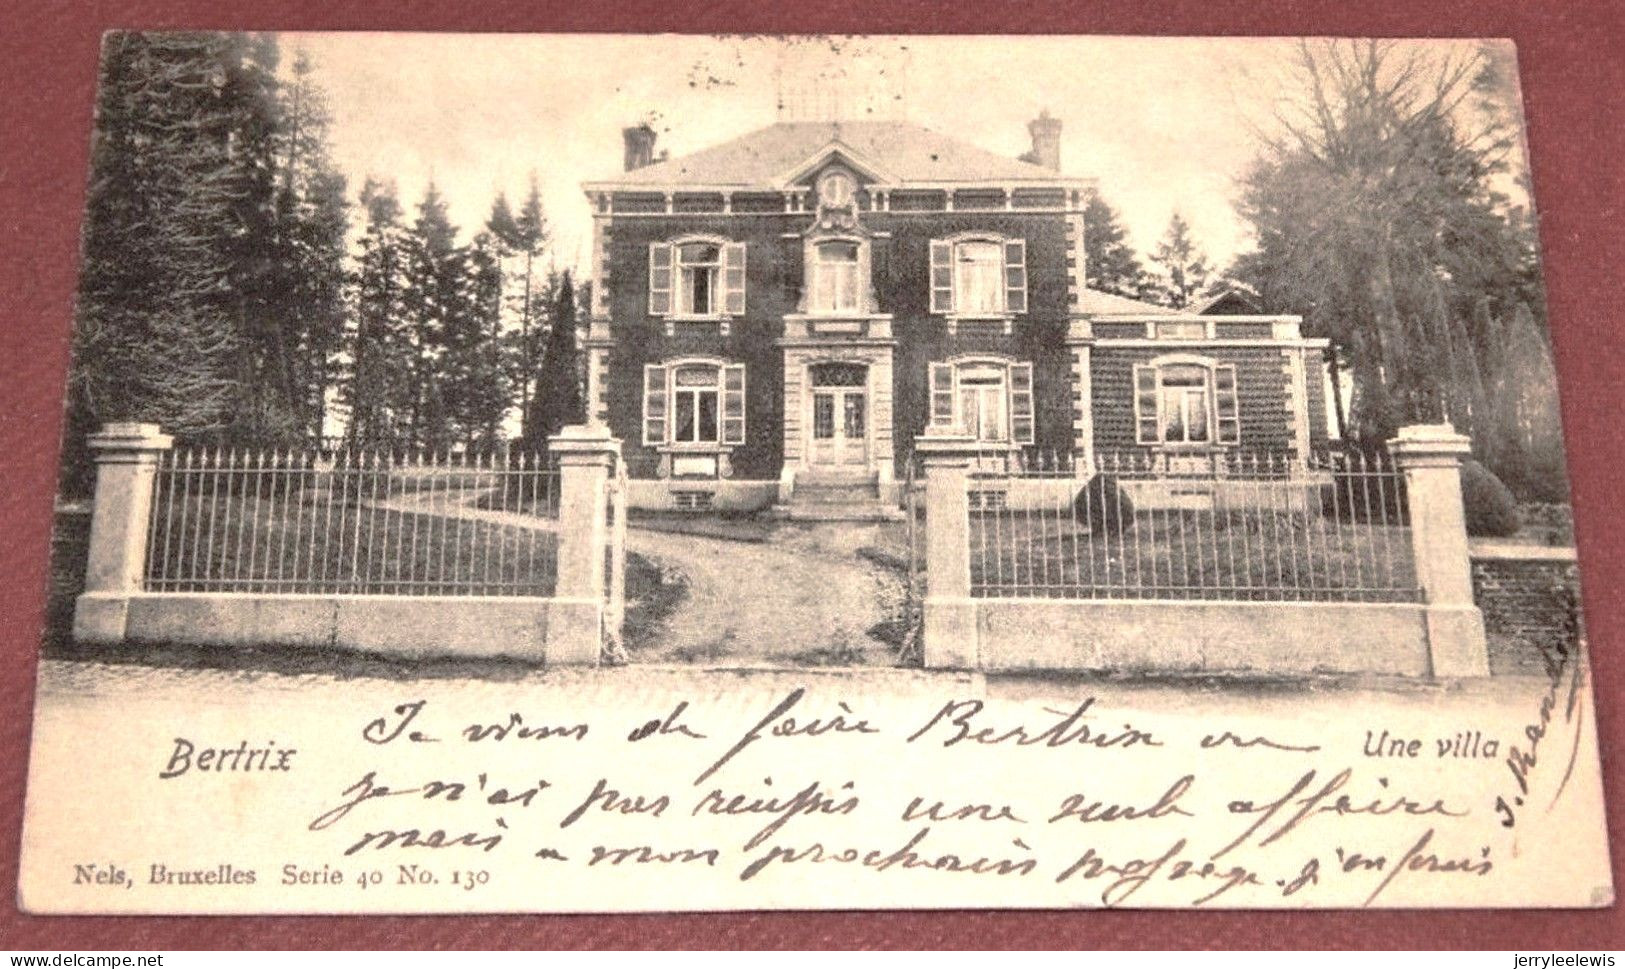 Bertrix
Une villa
Je viens de faire Bertrix ou
je n'ai pas réussis une seule affaire
mais a mon prochain passage. j'en ferais
Nels, Bruxelles Serie 40 No. 130
delcampe.net
jerryleelewis